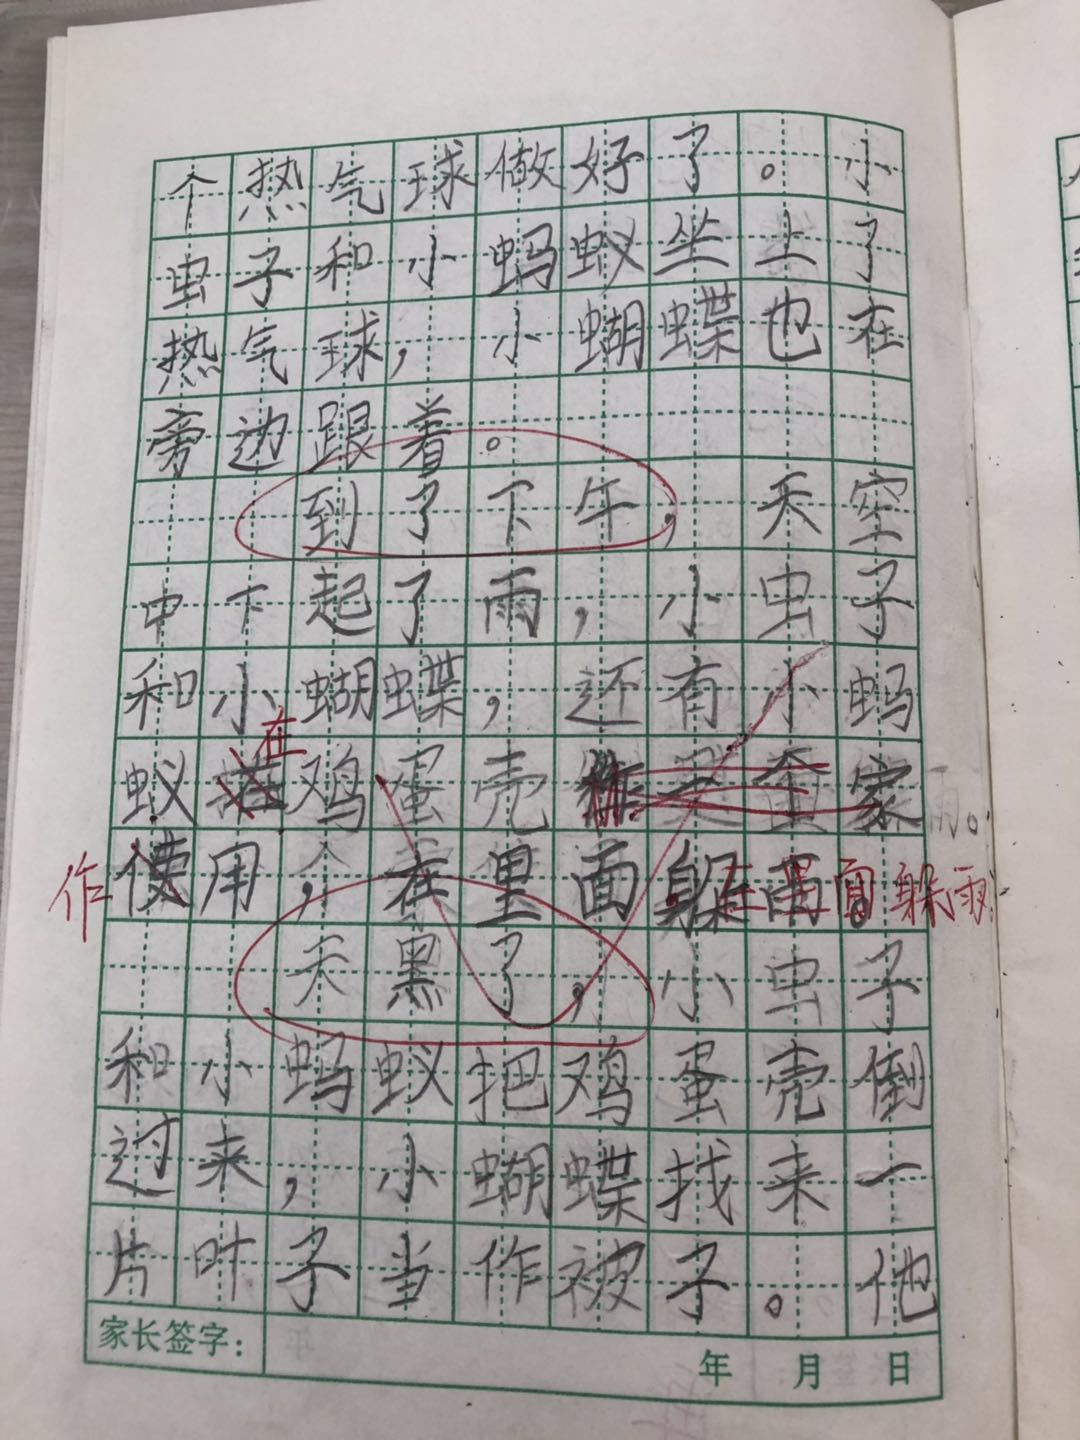 个热气球做好了。小
虫子和小蚂蚁坐上了
热气球，小蝴蝶也在
旁边跟着。
到了下午，天空
中下起了雨，小虫子
和小蝴蝶，还有小蚂
在
蚁鸡蛋壳
作使用，在里面躲雨 面躲雨
天黑了，小虫子
和小蚂蚁把鸡蛋壳倒
过来，小蝴蝶找来一
片叶子当作被子。他
家长签字：
年 月 日